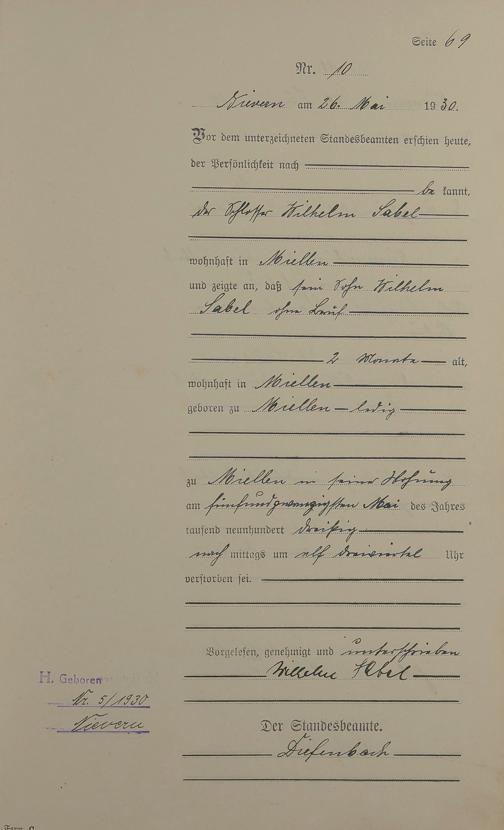 Seite 69
Nr. 10
Nievern am 26. Mai 1930.
Vor dem unterzeichneten Standesbeamten erschien heute,
der Persönlichkeit nach
be kannt,
der Schlosser Wilhelm Sabel
wohnhaft in Miellen
und zeigte an, daß sein Sohn Wilhelm
Sabel ohne Beruf
2 Monate alt,
wohnhaft in Miellen
geboren zu Miellen – ledig
zu Miellen in seiner Wohnung
am fünfundzwanzigsten Mai des Jahres
tausend neunhundert dreißig
nach mittags um elf dreiviertel Uhr
verstorben sei.
Vorgelesen, genehmigt und unterschrieben
Wilhelm Sabel
H. Geboren
Nr. 5/1930
Nievern
Der Standesbeamte.
Diefenbach